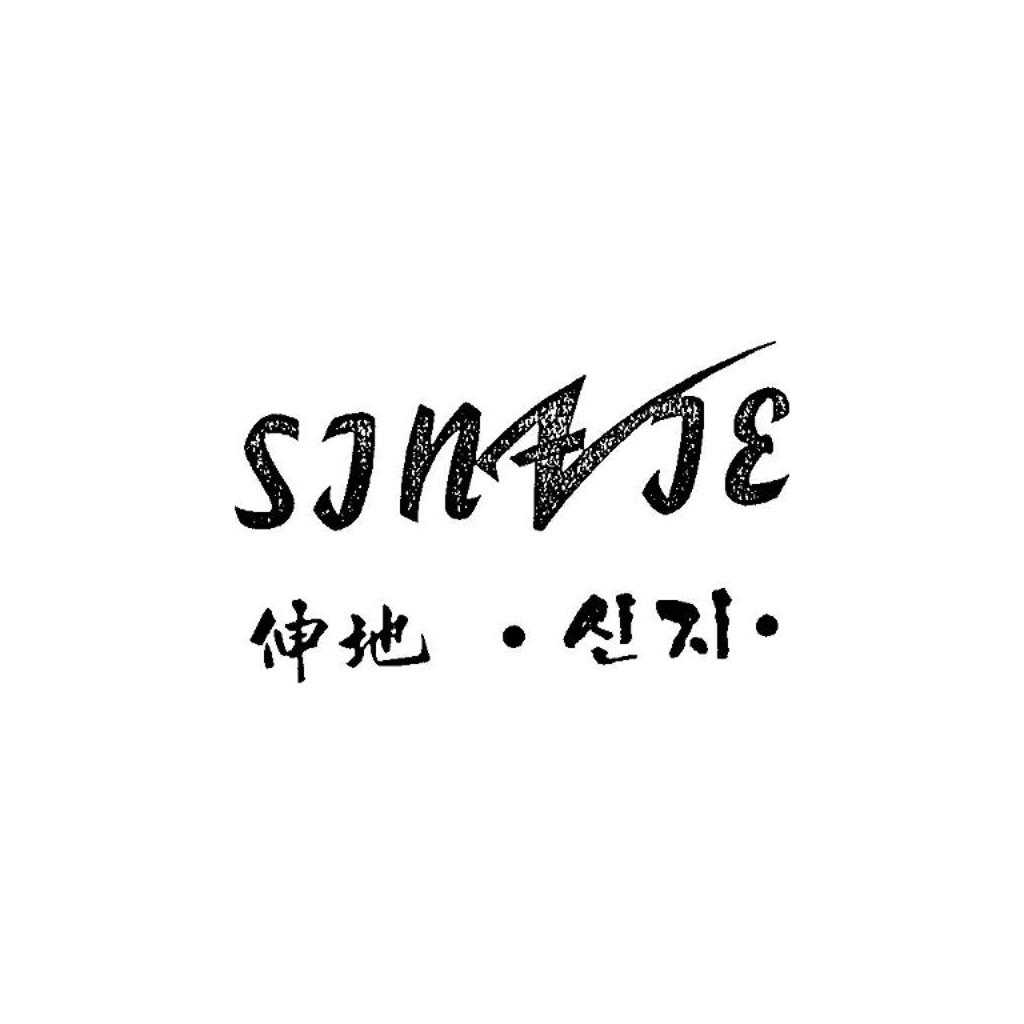 SINZIE
伸地 · 신지 ·